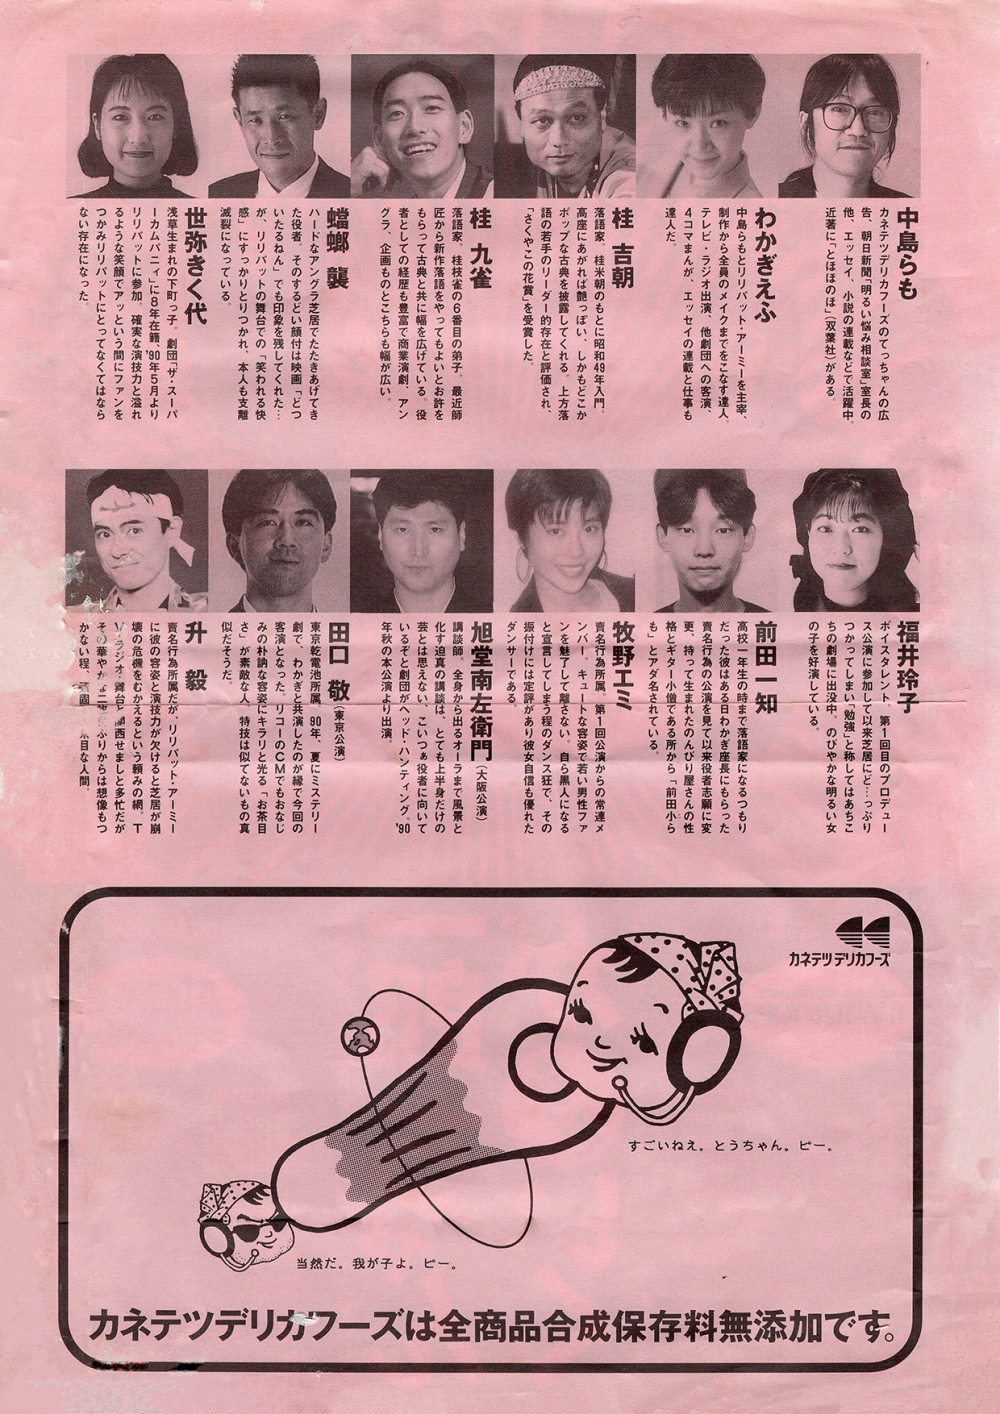 中島らも
カネテツデリカフーズのてっちゃんの広
告、朝日新聞「明るい悩み相談室」室長の
他、エッセイ、小説の連載などで活躍中。
近著に「とほほのほ」(双葉社)がある。
わかぎえふ
中島らもとリリパット・アーミーを主宰、
制作から全員のメイクまでをこなす達人。
テレビ・ラジオ出演、他劇団への客演、
4コマまんが、エッセイの連載と仕事も
達人だ。
桂 吉朝
落語家。桂米朝のもとに昭和49年入門。
高座にあがれば艶っぽい、しかもどこか
ポップな古典を披露してくれる。上方落
語の若手のリーダー的存在と評価され、
「さくやこの花賞」を受賞した。
桂 九雀
落語家。桂枝雀の6番目の弟子。最近師
匠から新作落語をやってもよいとお許を
もらって古典と共に幅を広げている。役
者としての経歴も豊富で商業演劇、アン
グラ、企画ものとこちらも幅が広い。
蟷螂 襲
ハードなアングラ芝居でたたきあげてき
た役者。そのするどい顔付は映画「どつ
いたるねん」でも印象を残してくれた…
が、リリパットの舞台での「笑われる快
感」にすっかりとりつかれ、本人も支離
滅裂になっている。
世弥きく代
浅草生まれの下町っ子。劇団「ザ・スーパ
ーカムパニィ」に8年在籍、'90年5月より
リリパットに参加。確実な演技力と溢れ
るような笑顔でアッという間にファンを
つかみリリパットにとってなくてはなら
ない存在になった。
福井玲子
ボイスタレント。第1回目のプロデュー
ス公演に参加して以来芝居にど…っぷり
つかってしまい「勉強」と称してはあちこ
ちの劇場に出没中。のびやかな明るい女
の子を好演している。
前田一知
高校一年生の時まで落語家になるつもり
だった彼はある日わかぎ座長にもらった
売名行為の公演を見て以来役者志願に変
更、持って生まれたのんびり屋さんの性
格とギター小僧である所から「前田小ら
も」とアダ名されている。
牧野エミ
売名行為所属。第1回公演からの常連メ
ンバー。キュートな容姿で若い男性ファ
ンを魅了して離さない。自ら黒人になる
と宣言してしまう程のダンス狂で、その
振付けには定評があり彼女自信も優れた
ダンサーである。
旭堂南左衛門 (大阪公演)
講談師。全身から出るオーラまで風景と
化す迫真の講談は、とても上半身だけの
芸とは思えない。こいつぁ役者に向いて
いるぞと劇団がヘッド・ハンティング。'90
年秋の本公演より出演。
田口 敬 (東京公演)
東京乾電池所属。90年、夏にミステリー
劇で、わかぎと共演したのが縁で今回の
客演となった。リコーのCMでもおなじ
みの朴訥な容姿にキラリと光る「お茶目
さ」が素敵な人、特技は似てないもの真
似だそうだ。
升 毅
売名行為所属だが、リリパット・アーミー
に彼の容姿と演技力が欠けると芝居が崩
壊の危機をむかえるという頼みの網。T
V・ラジオ・舞台と関西せましと多忙だが
その華やかな二枚ぶりからは想像もつ
かない程、真面目な人間。
カネテツデリカフーズ
すごいねえ。とうちゃん。ピー。
当然だ。我が子よ。ピー。
カネテツデリカフーズは全商品合成保存料無添加です。